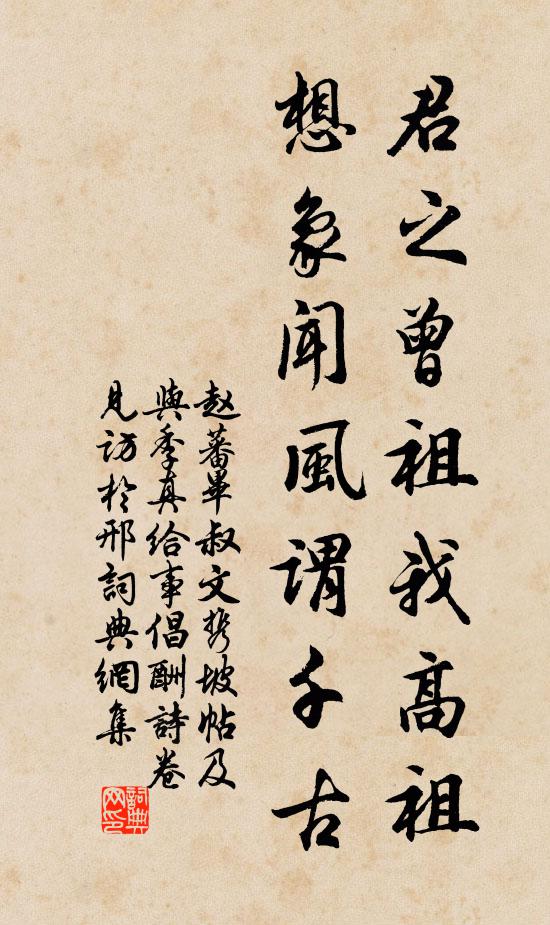 君之曾祖我高祖
想象闻風謂千古
赵蕃畢叔文携坡帖及
與季真給事倡酬詩卷
見訪於邢詞典網集
詞典网印